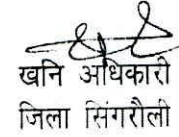 खनि अधिकारी
जिला सिंगरौली